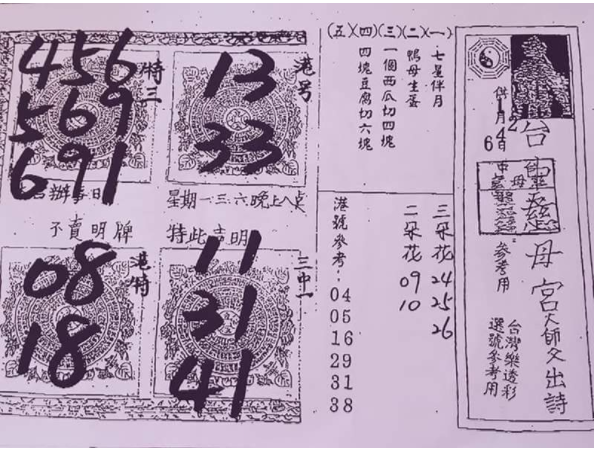 台
母宮大師父出詩
供
1月
4
6
參考用
台灣樂透彩
選號參考用
(一)七星伴月
(二)鴨母生蛋
(三)一個西瓜切四塊
(四)四塊豆腐切六塊
(五)
三朵花 24 25 26
二朵花 09 10
港號參考:04 05 16 29 31 38
港号
13
33
特三
456
569
691
辦事日
星期一三六晚上八点
不賣明牌
特此吉明
三中一
11
31
41
港特
08
18